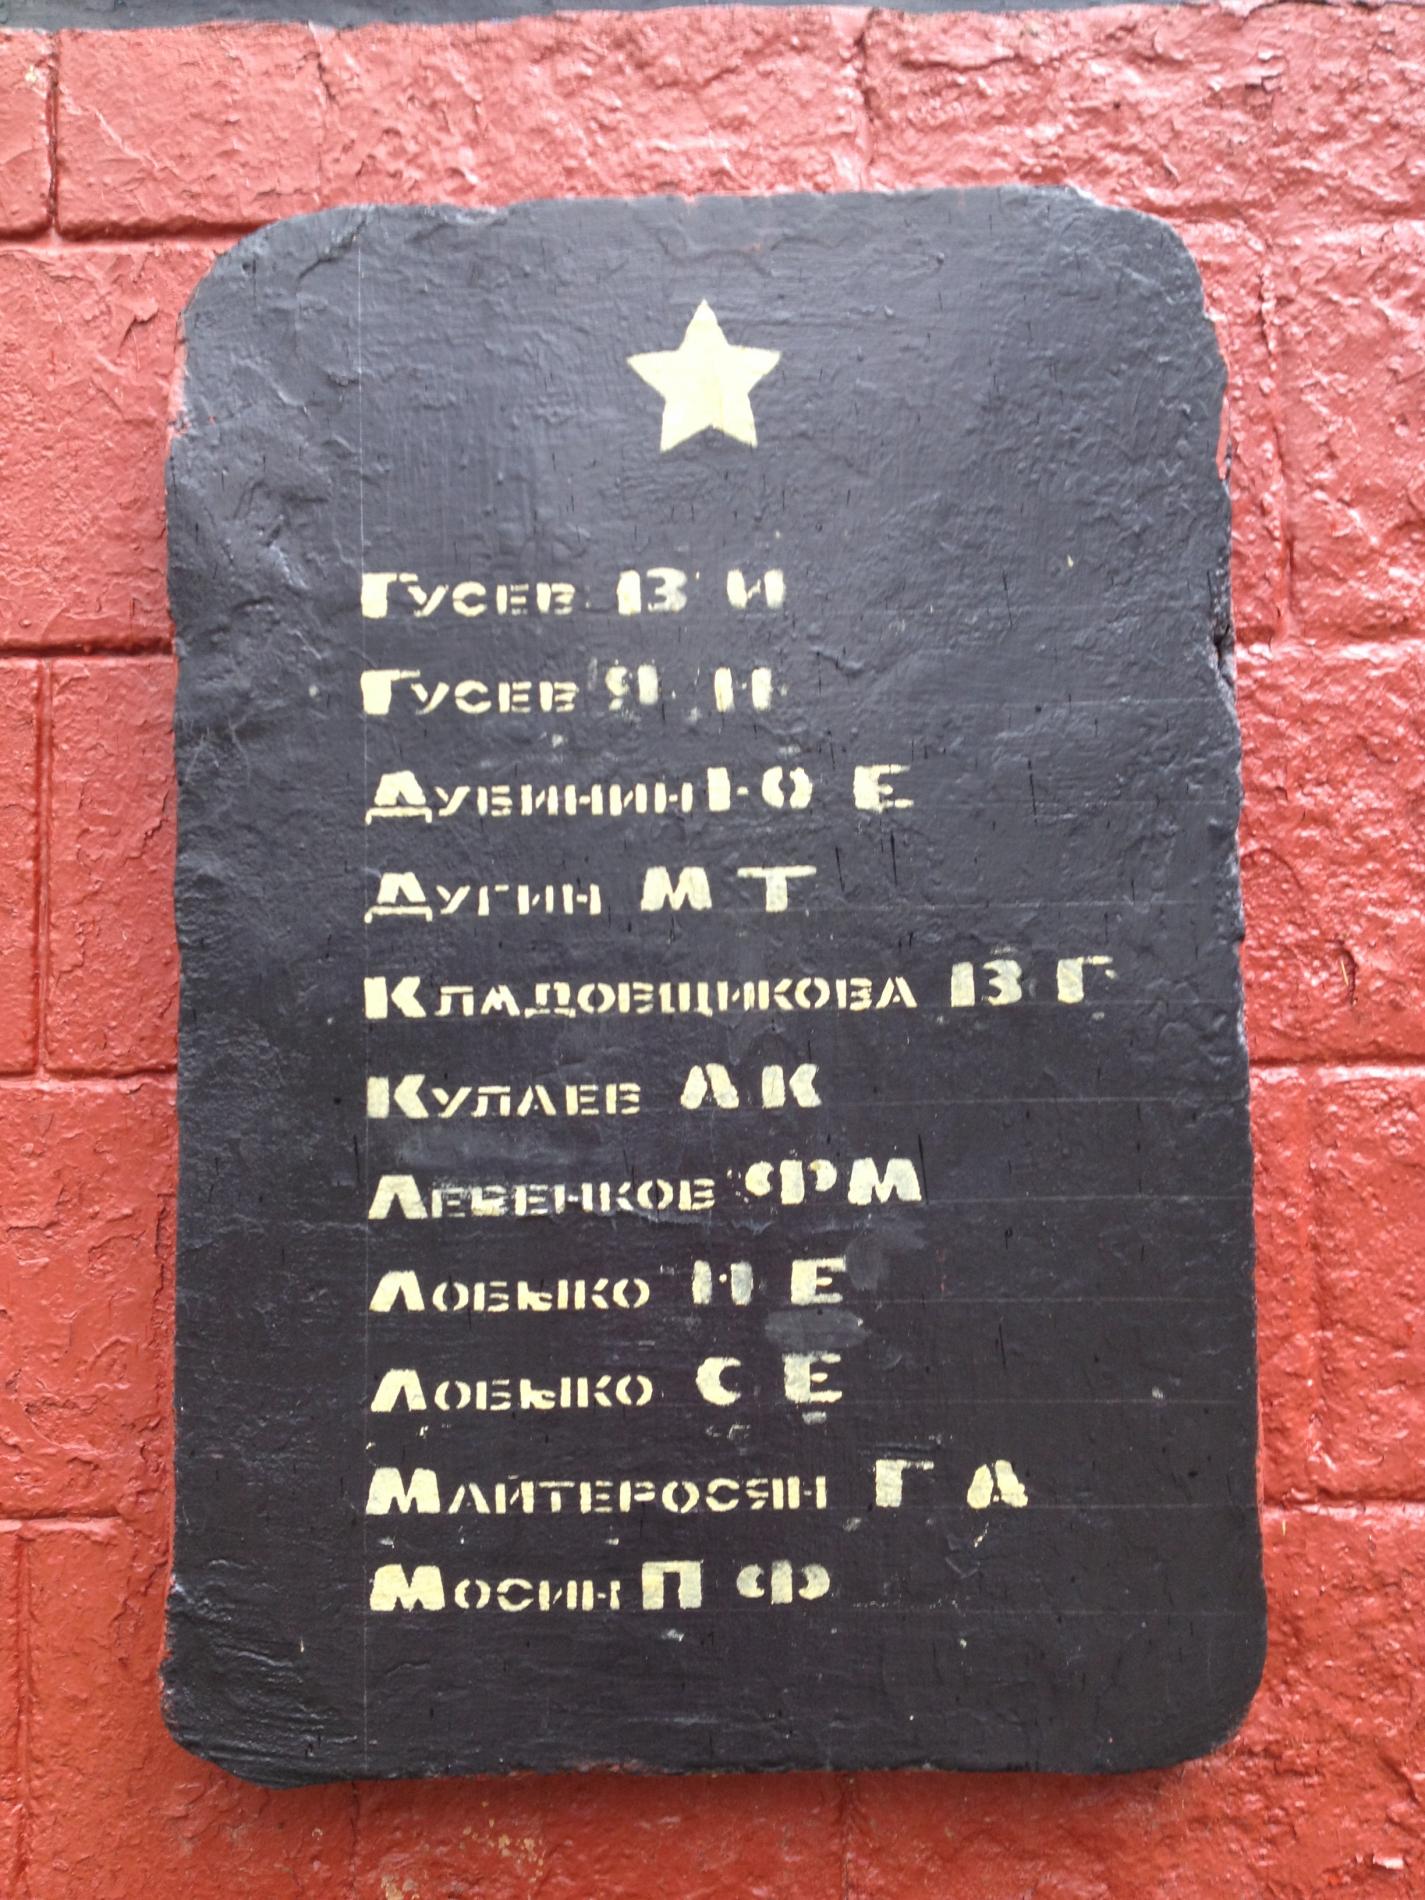 Гусев В И
Гусев Я И
Дубинин Ю Е
Дугин М Т
Кладовщикова В Г
Кулаев А К
Левенков Ф М
Лобыко И Е
Лобыко С Е
Майтеросян Г А
Мосин П Ф